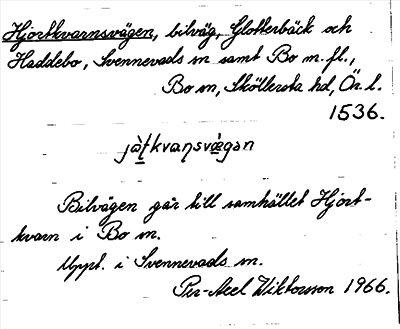 Hjortkvarnsvägen, bilväg, Glotterbäck och
Haddebo, Svennevads sn samt Bo sn. fl.,
Bo sn, Sköllersta hd, Ör. l.
1536.
jàʈkvaɳsvä̀gən
Bilvägen går till samhället Hjort-
kvarn i Bo sn.
Uppt. i Svennevads sn.
Per-Axel Wiktorsson 1966.